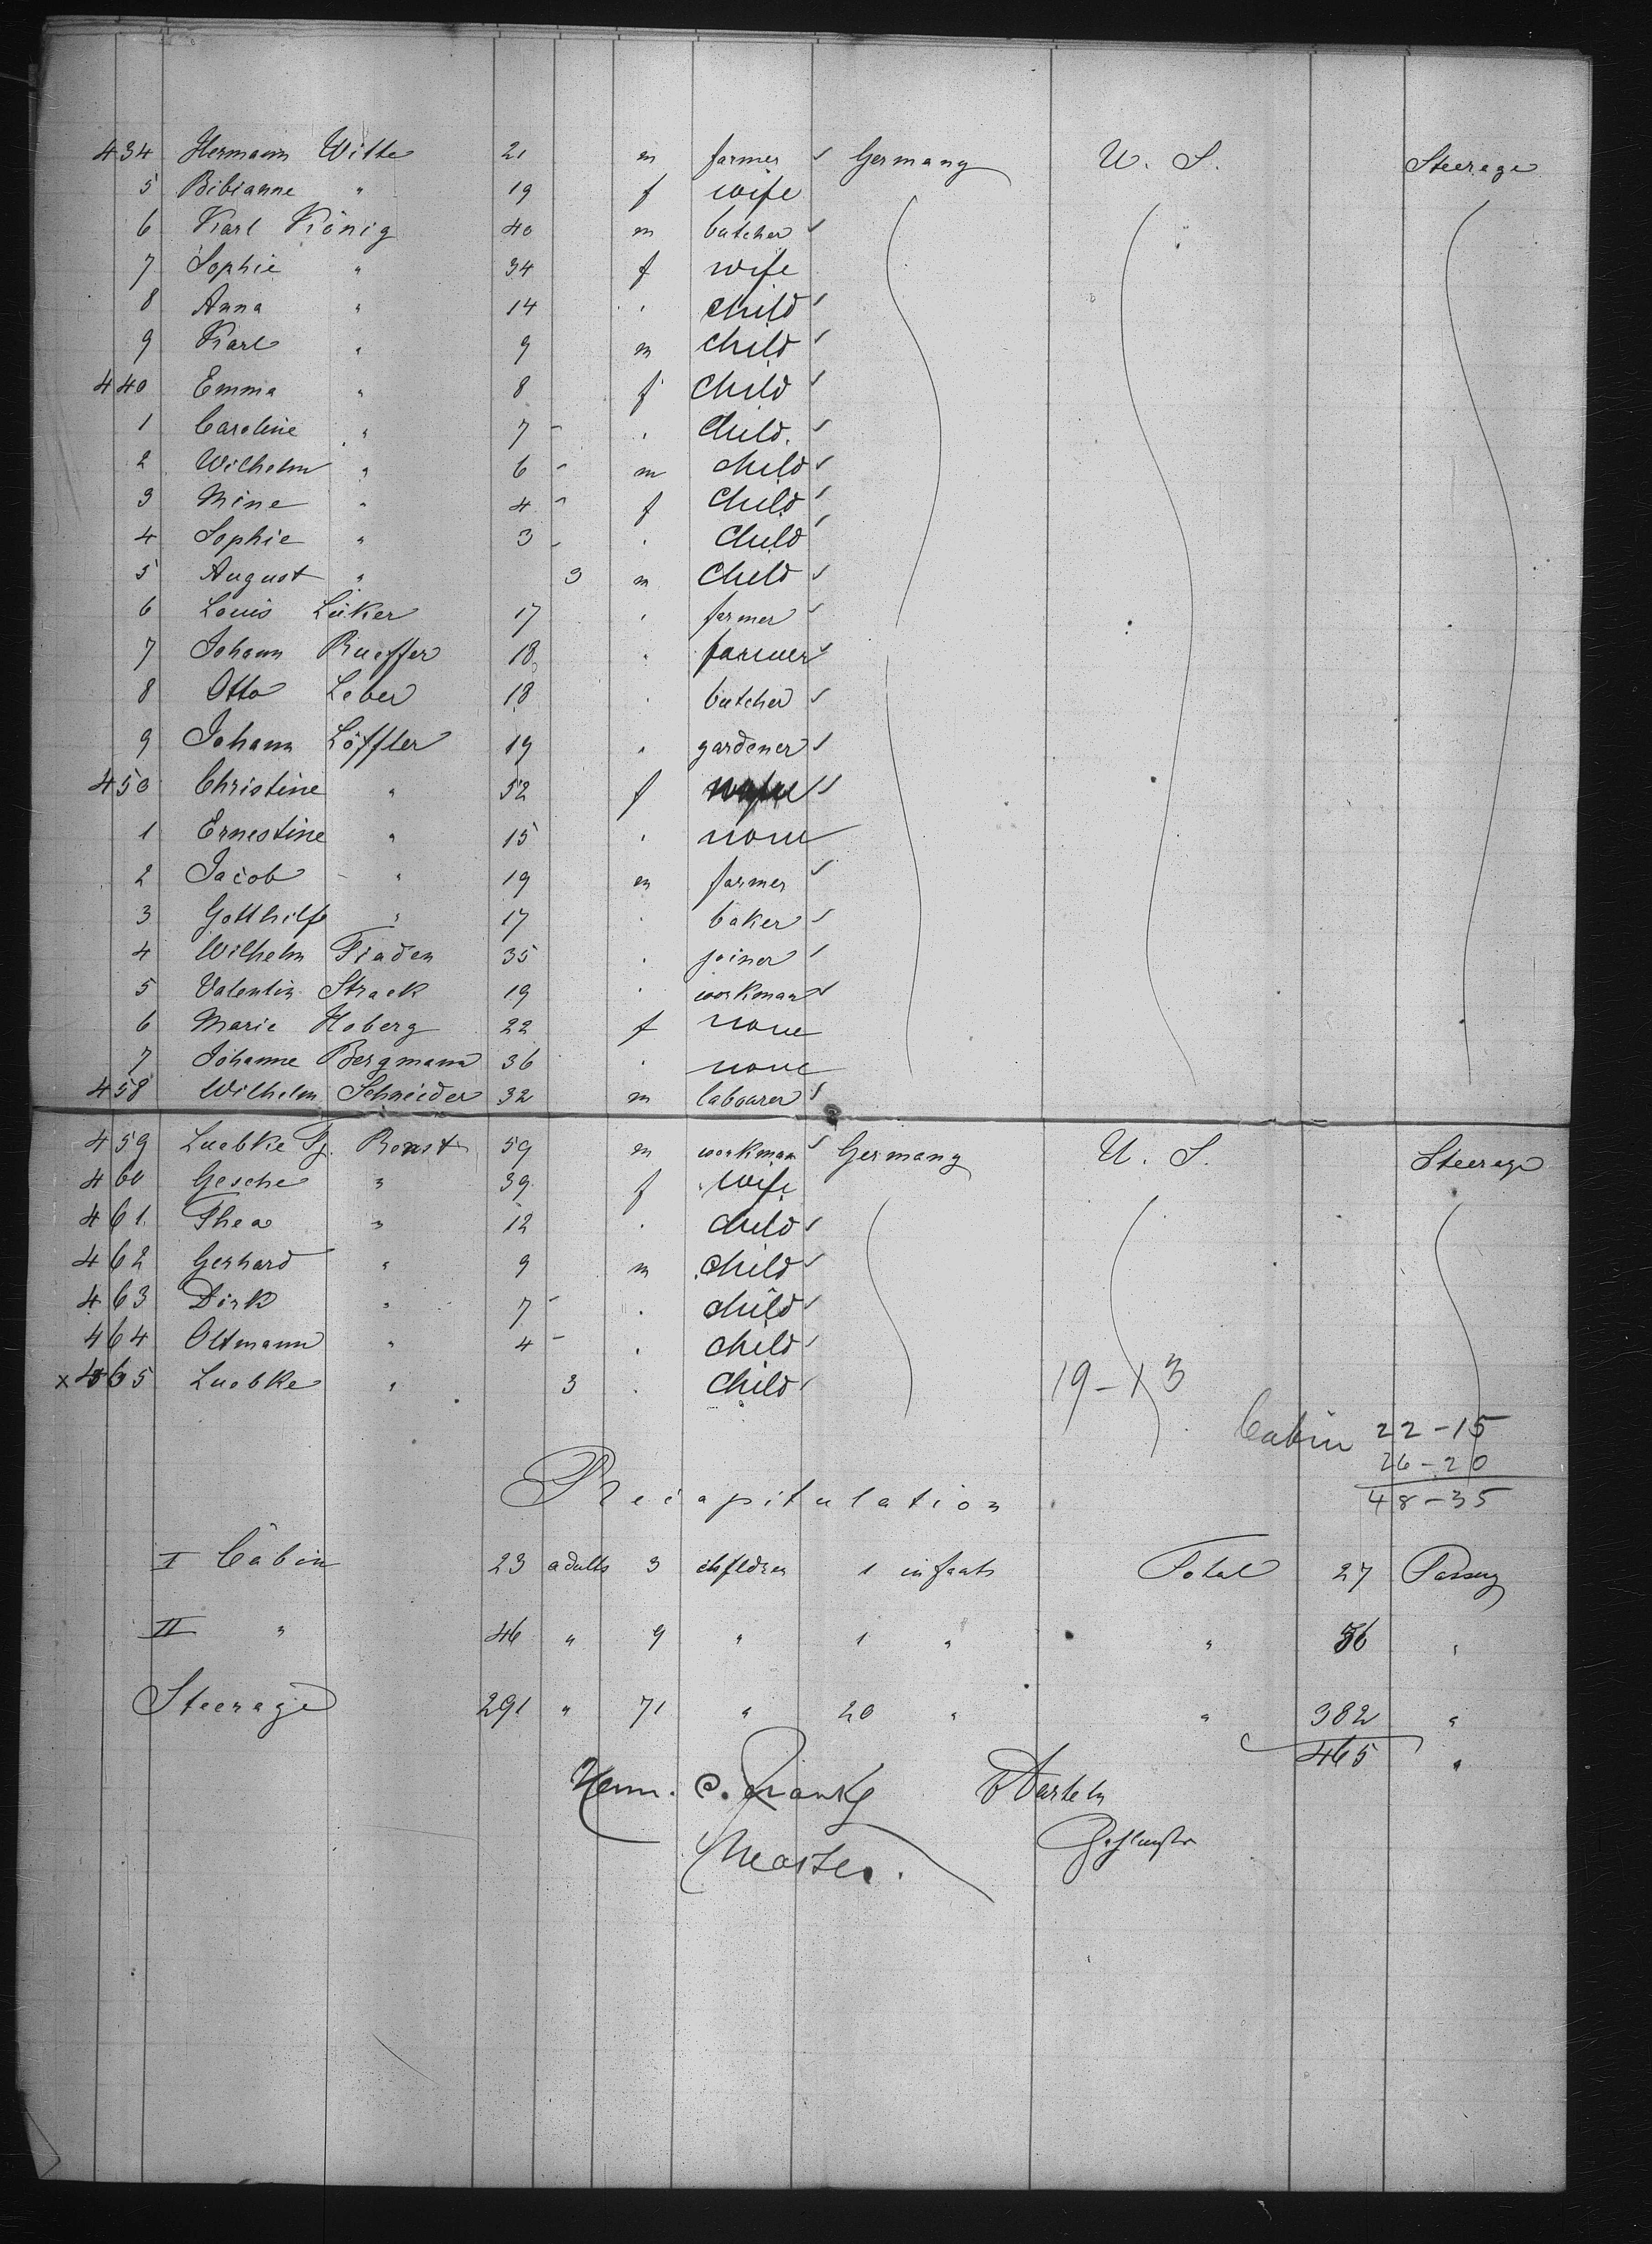 434 Hermann Witte 21 m farmer Germany U. S. Steerage
5 Bibianne " 19 f wife
6 Karl König 40 m butcher
7 Sophie " 34 f wife
8 Anna " 14 " child
9 Karl " 9 m child
440 Emma " 8 f child
1 Caroline " 7 " child.
2 Wilhelm " 6 m child
3 Mine " 4 f child
4 Sophie " 3 " child
5 August " 3 m child
6 Louis Lüker 17 " farmer
7 Johann Rueffer 18 " farmer
8 Otto Leber 18 " butcher
9 Johann Löffler 19 " gardener
450 Christine " 52 f
1 Ernestine " 15 " none
2 Jacob " 19 m farmer
3 Gotthilf " 17 " baker
4 Wilhelm Fiaden 35 " joiner
5 Valentin Strack 19 " workman
6 Marie Hoberg 22 f none
7 Johanne Bergmann 36 " none
458 Wilhelm Schneider 32 m labourer
459 Luebke Tj. Renst 59 m workman Germany U. S. Steerage
460 Gesche " 39 f wife
461 Thea " 12 " child
462 Gerhard " 9 m child
463 Dirk " 7 " child
464 Oltmann " 4 " child
x 465 Luebke " 3 " child
19-13
Cabin 22-15
26-20
48-35
Recapitulation
I Cabin 23 adults 3 children 1 infants Total 27 Passeng
II " 46 " 9 " 1 " " 56 "
Steerage 291 " 71 " 20 " " 382 "
465 "
Herm. C.
Master.